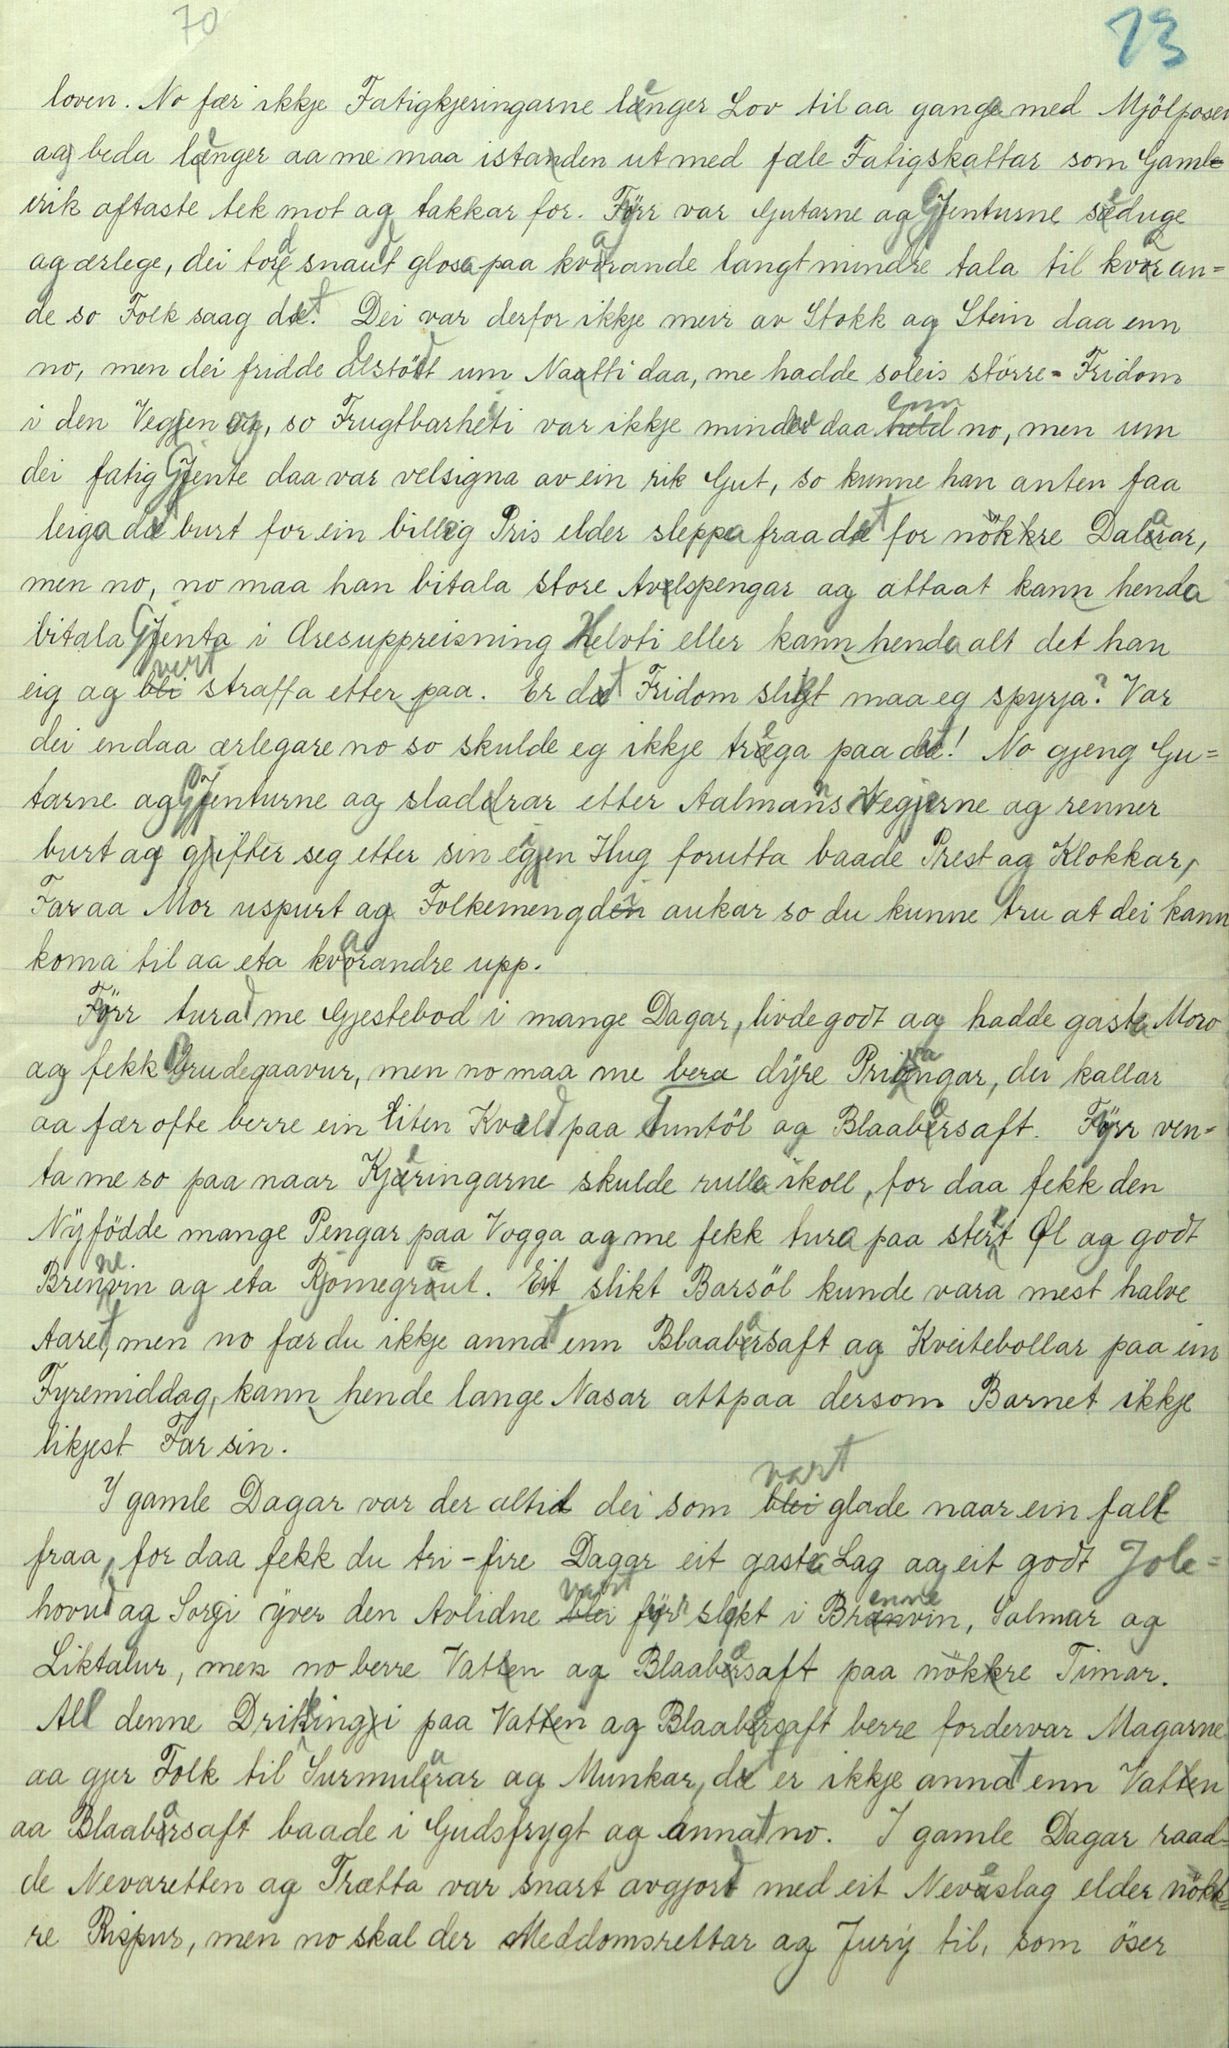 70
73
loven. No fær ikkje Fatigkjeringarne lenger Lov til aa ganga med Mjölposen
ag beda lenger aa me maa istanden ut med fæle Fatigskattar som Gamle-
irik oftaste tek mot ag takkar for. Fyrr var Gutarne ag Gjenturne seduge
ag ærlege, dei tord snaut glosa paa kvarande langt mindre tala til kvaran=
de so Folk saag det. Dei var derfor ikkje meir av Stokk ag Stein daa enn
no, men dei fridde alstödt um Natti daa, me hadde soleis större Fridom
i den Vegen ag, so Frugtbarheti var ikkje mindre daa held enn no, men um
dei fatig Gjente daa var velsigna av ein rik Gut, so kunne han anten faa
leiga det burt for ein billeg Pris elder sleppa fraa det for nökre Dalar,
men no, no maa han bitala store Avelspengar ag attaat kann henda
bitala Gjenta i Æresuppreisning Helvti eller kann henda alt det han
eig ag bli vert straffa etter paa. Er det Fridom sligt maa eg spyrja? Var
dei endaa ærlegare no so skulde eg ikkje trega paa det! No gjeng Gu=
tarne ag Gjenturne ag sladdrar etter Aalmans Vegjerne ag renner
burt ag gifter seg etter sin egen Hug forutta baade Prest ag Klokkar,
Far aa Mor uspurt ag Folkemengdi aukar so du kunne tru at dei kann
koma til aa eta kvarandre upp.
Fyrr turad me Gjestebod i mange Dagar, livde godt ag hadde gasta Moro
ag fekk Brudegaavur, men no maa me bera dÿre Prisangar, dei kallar
aa fær ofte berre ein liten Kveld paa Tuntöl ag Blaabersaft. Fyrr ven-
ta me so paa naar Kjeringarne skulde rulla ikoll, for daa fekk den
Nÿfödde mange Pengar paa Vogga ag me fekk tura paa sterkt Øl ag godt
Brennevin ag eta Rjomegraut. Eit slikt Barsöl kunde vara mest halve
Aaret, men no fær du ikkje annat enn Blaabersaft ag Kveitebollar paa ein
Fyremiddag, kann hende lange Nasar attpaa dersom Barnet ikkje
likjest Far sin.
I gamle Dagar var der altid dei som blei vart glade naar ein fall
fraa, for daa fekk du tri-fire Dagar eit gasta Lag aa eit godt Jole=
hovud ag Sorgi ÿver den Avlidne blei vart fyrr slökt i Brennevin, Salmar ag
Liktalur, men no berre Vatten ag Blaabersaft paa nökre Timar.
All denne Drikkingi paa Vatten ag Blaabersaft berre fordervar Magarne
aa gjer Folk til Surmularar ag Munkar, det er ikkje annat enn Vatten
aa Blaabersaft baade i Gudsfrygt ag annat no. I gamle Dagar raad-
de Nevaretten ag Trætta var snart avgjord med eit Nevaslag elder nökk=
re Rispur, men no skal der Meddomsrettar ag Jurÿ til, som öser